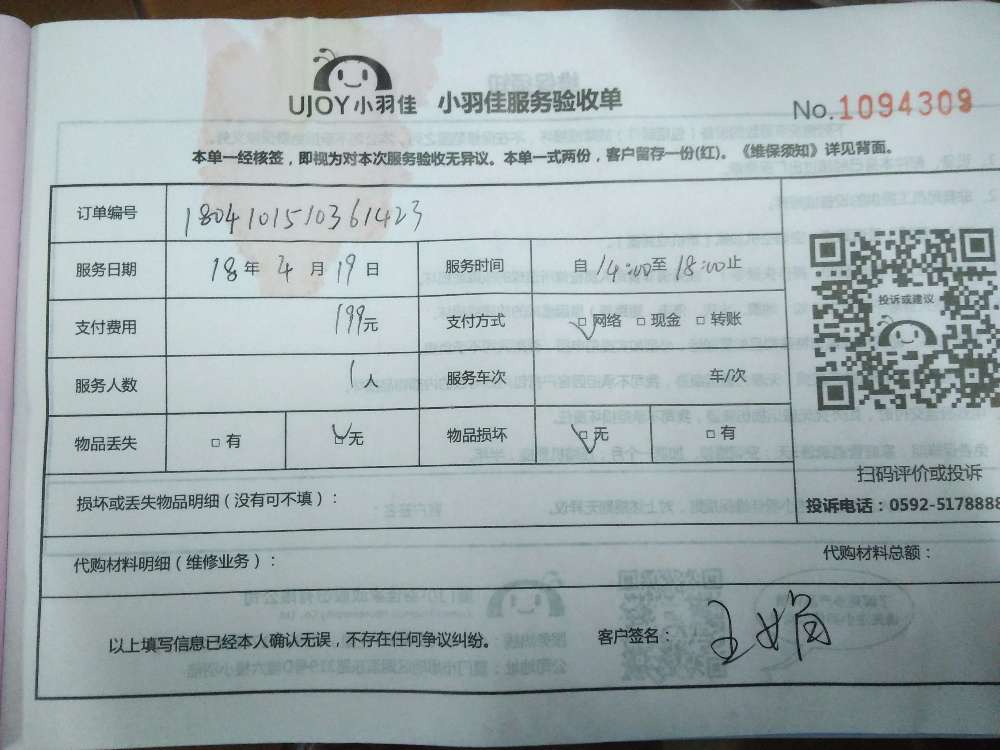 UJOY小羽佳 小羽佳服务验收单
No.1094309
本单一经核签，即视为对本次服务验收无异议。本单一式两份，客户留存一份(红)。《维保须知》详见背面。
订单编号 1804101510361423
服务日期 18年4月19日 服务时间 自14:00至18:00止
支付费用 199元 支付方式 ☑网络 □现金 □转账
服务人数 1人 服务车次 车/次
物品丢失 □有 ☑无 物品损坏 ☑无 □有
投诉或建议
扫码评价或投诉
投诉电话：0592-5178888
损坏或丢失物品明细（没有可不填）：
代购材料明细（维修业务）： 代购材料总额：
以上填写信息已经本人确认无误，不存在任何争议纠纷。 客户签名： 王娟